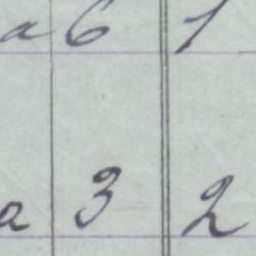 a 6 1
a 3 2